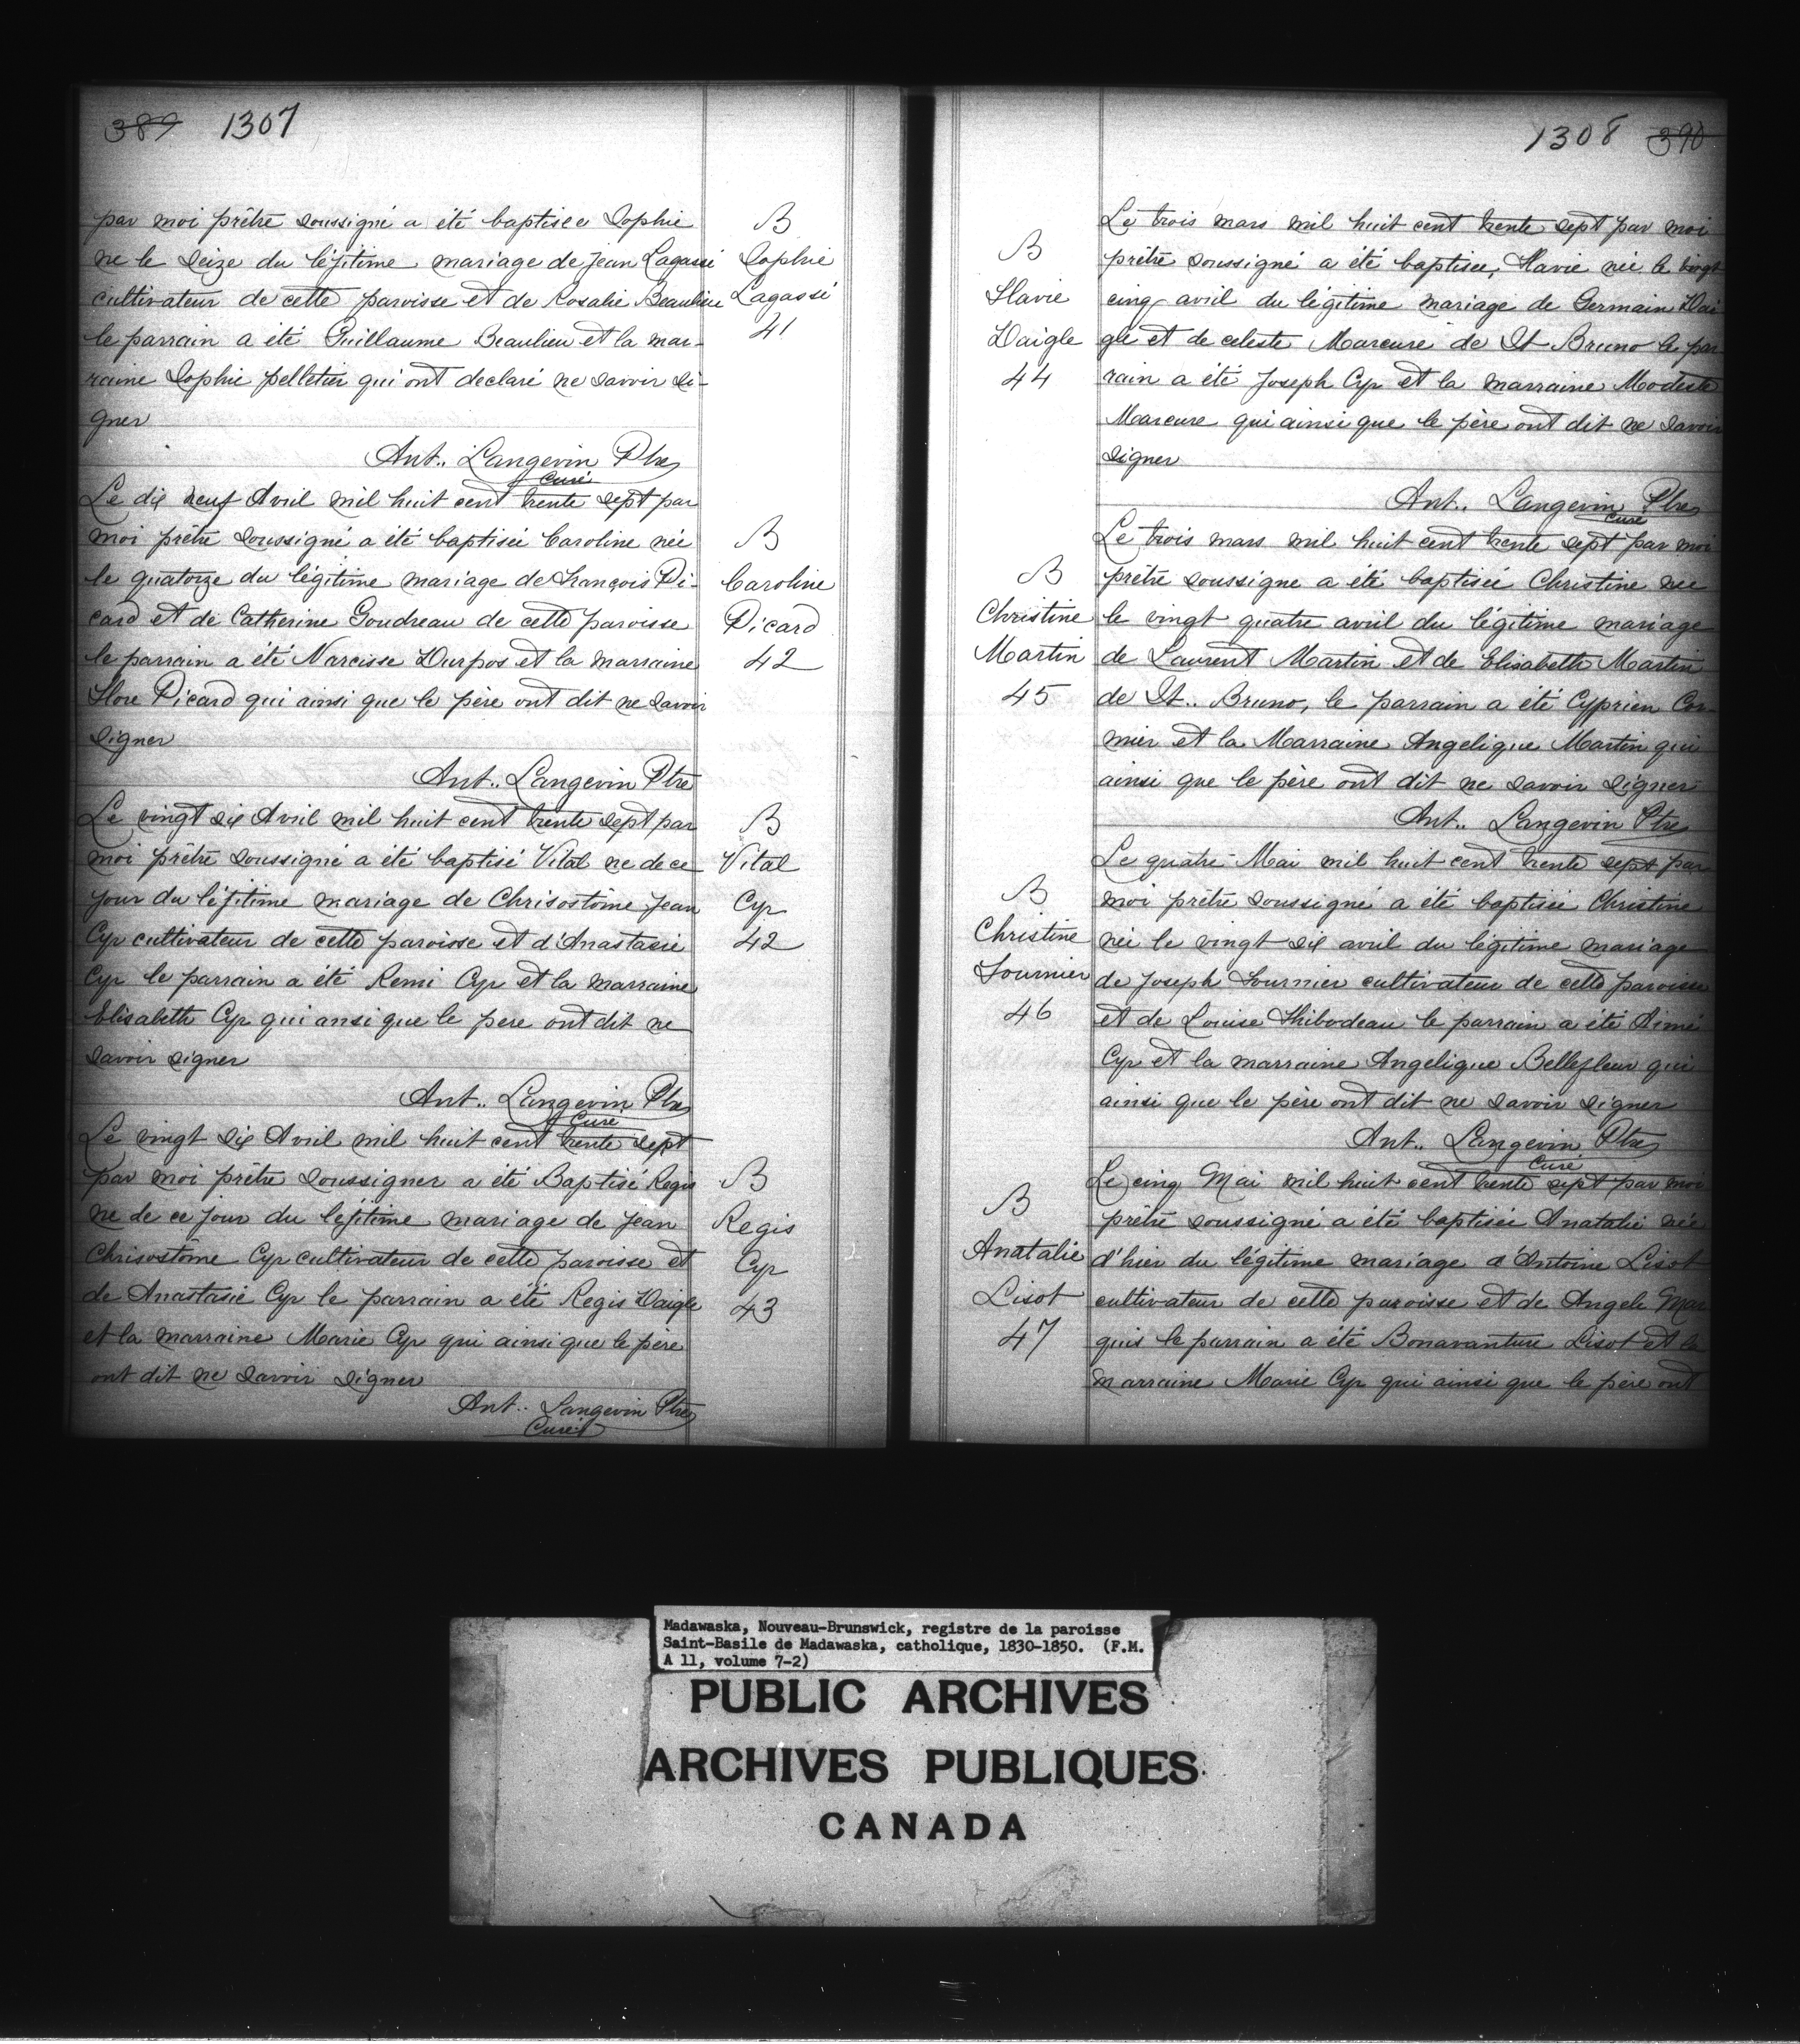 389 1307
par moi prêtre soussigné a été baptisée Sophie
ne le seize du légitime mariage de Jean Lagassé
cultivateur de cette paroisse et de Rosalie Beaulieu
le parrain a été Guillaume Beaulieu et la mar-
raine Sophie pelletier qui ont declaré ne savoir si-
gner
Ant.. Langevin Ptre
Curé
B
Sophie
Lagassé
41
Le dix neuf Avril mil huit cent trente sept par
moi prêtre soussigné a été baptisée Caroline née
le quatorze du légitime mariage de François Pi-
card et de Catherine Goudreau de cette paroisse
le parrain a été Narcisse Durpos et la marraine
Flore Picard qui ainsi que le père ont dit ne savoir
signer
Ant.. Langevin Ptre
B
Caroline
Picard
42
Le vingt six Avril mil huit cent trente sept par
moi prêtre soussigné a été baptisé Vital ne de ce
jour du légitime mariage de Chrisostôme Jean
Cyr cultivateur de cette paroisse et d'Anastasie
Cyr le parrain a été Remi Cyr et la marraine
Elisabeth Cyr qui ansi que le pere ont dit ne
savoir signer
Ant.. Langevin Ptre
Curé
B
Vital
Cyr
42
Le vingt six Avril mil huit cent trente sept
par moi prêtre soussigner a été Baptisé Regis
ne de ce jour du légitime mariage de Jean
Chrisostôme Cyr cultivateur de cette paroisse et
de Anastasie Cyr le parrain a été Regis Daigle
et la marraine Marie Cyr qui ainsi que le père
ont dit ne savoir signer
Ant.. Langevin Ptre
Curé
B
Regis
Cyr
43
1308 390
Le trois mars mil huit cent trente sept par moi
prêtre soussigné a été baptisée, Flavie née le vingt
cinq avril du légitime mariage de Germain Dai
gle et de celeste Marcure de St Bruno le par
rain a été Joseph Cyr et la marraine Modeste
Marcure qui ainsi que le père ont dit ne savoir
signer
Ant.. Langevin Ptre
Curé
B
Flavie
Daigle
44
Le trois mars mil huit cent trente sept par moi
prêtre soussigne a été baptisée Christine nee
le vingt quatre avril du légitime mariage
de Laurent Martin et de Elisabeth Martin
de St.. Bruno, le parrain a été Cyprien Cor
mier et la Marraine Angelique Martin qui
ainsi que le père ont dit ne savoir signer
Ant.. Langevin Ptre
B
Christine
Martin
45
Le quatre Mai mil huit cent trente sept par
moi prêtre soussigné a été baptisée Christine
née le vingt six avril du légitime mariage
de Joseph Fournier cultivateur de cette paroisse
et de Louise Thibodeau le parrain a été Aimé
Cyr et la marraine Angelique Bellefleur qui
ainsi que le père ont dit ne savoir signer
Ant.. Langevin Ptre
Curé
B
Christine
Fournier
46
Le cinq Mai mil huit cent trente sept par moi
prêtre soussigné a été baptisée Anatalie née
d'hier du légitime mariage d'Antoine Lisot
cultivateur de cette paroisse et de Angele Mar
quis le parrain a été Bonavanture Lisot et la
marraine Marie Cyr qui ainsi que le père ont
B
Anatalie
Lisot
47
Madawaska, Nouveau-Brunswick, registre de la paroisse
Saint-Basile de Madawaska, catholique, 1830-1850. (F.M.
A 11, volume 7-2)
PUBLIC ARCHIVES
ARCHIVES PUBLIQUES
CANADA